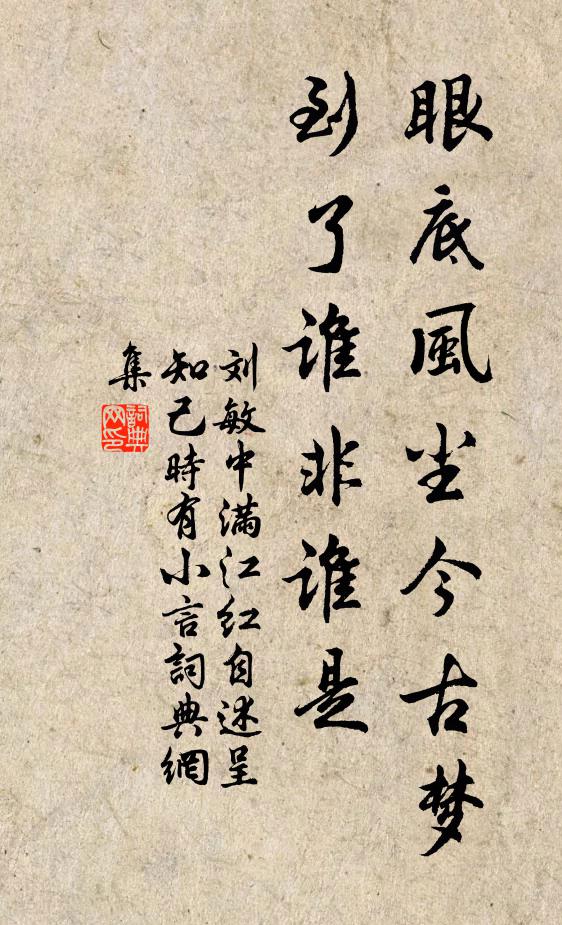 眼底風尘今古梦
到了谁非谁是
刘敏中满江红自述呈
知己時有小言詞典網
集
詞典网印